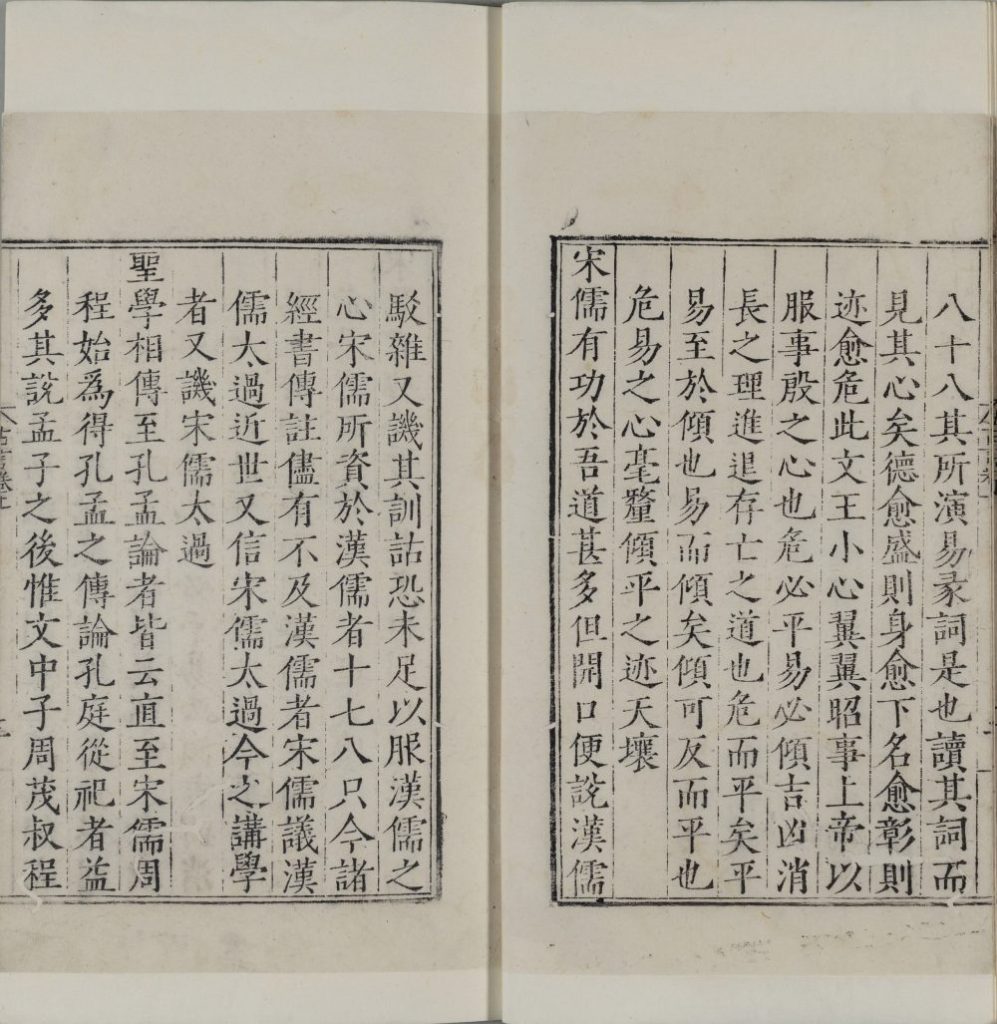 八十八其所演易彖詞是也讀其詞而
見其心矣德愈盛則身愈下名愈彰則
迹愈危此文王小心翼翼昭事上帝以
服事殷之心也危必平易必傾吉凶消
長之理進退存亡之道也危而平矣平
易至於傾也易而傾矣傾可反而平也
危易之心毫釐傾平之迹天壤
宋儒有功於吾道甚多但開口便說漢儒
駁雜又譏其訓詁恐未足以服漢儒之
心宋儒所資於漢儒者十七八只今諸
經書傳註儘有不及漢儒者宋儒議漢
儒太過近世又信宋儒太過今之講學
者又譏宋儒太過
聖學相傳至孔孟論者皆云直至宋儒周
程始為得孔孟之傳論孔庭從祀者益
多其說孟子之後惟文中子周茂叔程